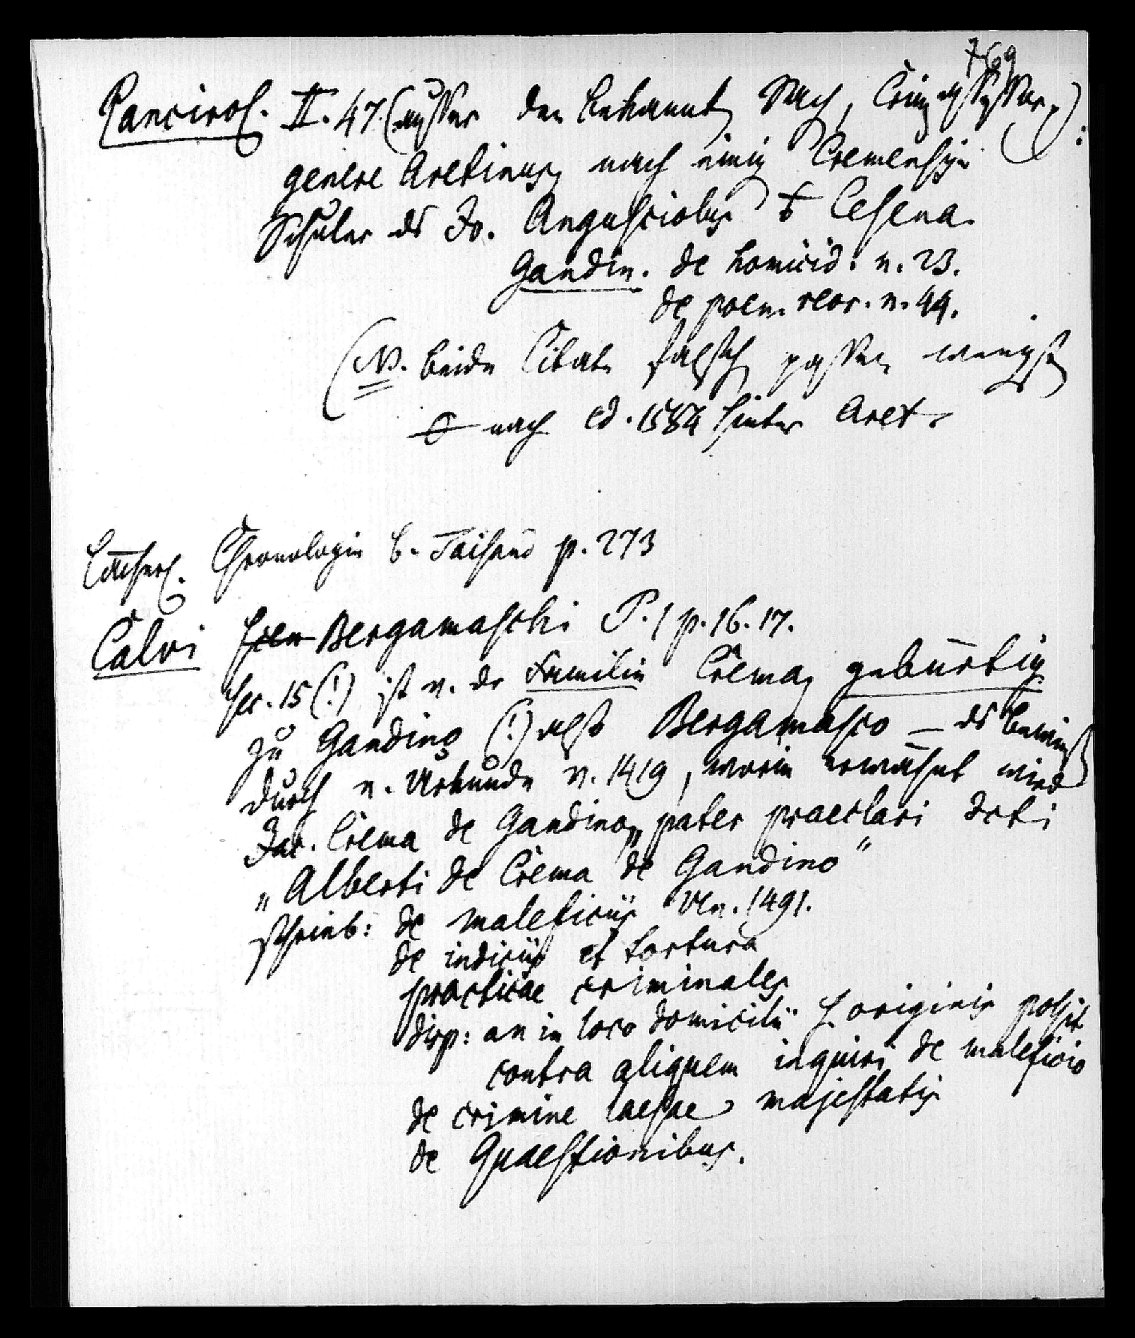 769
Pancirol. II. 47. (außer den bekannt Nach,
genere Aretinus, nach einig Cremensis
Schüler ds Jo. Anguisciolus b Cesena.
Gandin. de homicid: n. 23.
de poen. reor. n. 44.
(NB. beide Citate falsch, passen wenigst
nach ed. 1584 hinter Aret.
Chronologie b. Taisand p. 273
Calvi Scen Bergamaschi P. 1 p. 16. 17.
sec. 15 (!) ist v. der Familie Crema, gebürtig
zu Gandino (!) Bergamasco – ds bewiest
durch e. Urkunde v. 1419, worin erwähnt wird
Jac. Crema de Gandino, „pater praeclari dcti
„Alberti de Crema de Gandino“
schrieb: de maleficiis Ven. 1491.
de indiciis et tortura
practicae criminales
disp: an in loco domicilii s. originis possit
contra aliquem inquiri de maleficio
de crimine laesae majestatis
de Quaestionibus.